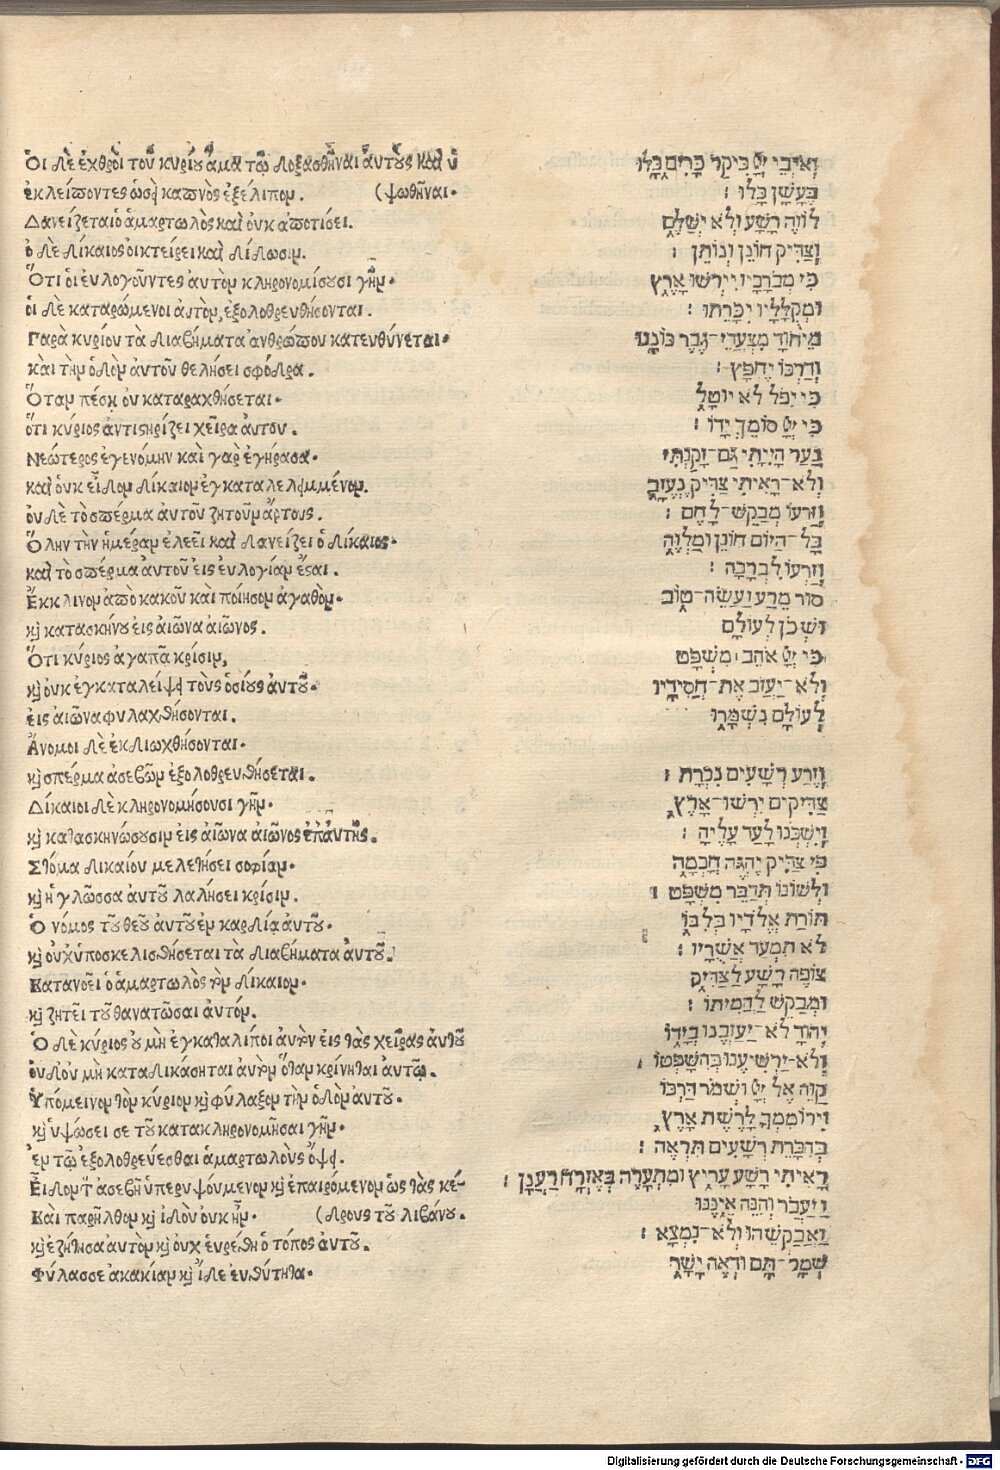 Ὁι δὲ ἐχθροὶ τοῦ κυρίου ἅμα τῷ δοξασθῆναι ἀυτοὺς καὶ ὑ
ἐκλείποντες ὡσὶ καπνὸς ἐξέλιπον. (ψωθῆναι·
Δανείζεται ὁ ἁμαρτωλὸς καὶ ὀυκ ἀποτίσει.
ὁ δὲ δίκαιος ὀικτείρει καὶ δίδωσιν.
Ὅτι ὁι ἐυλογοῦντες ἀυτὸν κληρονομίσουσι γῆν·
ὁι δὲ καταρώμενοι ἀυτὸν, ἐξολοθρευθήσονται.
Παρὰ κυρίου τὰ διαβήματα ἀνθρώπου κατευθύνεται·
καὶ τὴν ὁδὸν ἀυτοῦ θελήσει σφόδρα.
Ὅταν πέσῃ ὀυ καταραχθήσεται·
ὅτι κύριος ἀντιστηρίζει χεῖρα ἀυτου.
Νεώτερος ἐγενόμην καὶ γαρ ἐγήρασα·
καὶ ὀυκ εἶδον δίκαιον ἐγκαταλελιμμένον.
ὀυδὲ τὸ σπέρμα ἀυτοῦ ζητοῦν ἄρτους.
Ὅλην τὴν ἡμέραν ἐλεεῖ καὶ δανείζει ὁ δίκαιος·
καὶ τὸ σπέρμα ἀυτοῦ εἰς ἐυλογίαν ἔσαι.
Ἔκκλινον ἀπὸ κακοῦ καὶ ποίησον ἀγαθον·
κὶ κατασκήνου εἰς αἰῶνα αἰῶνος.
Ὅτι κύριος ἀγαπᾶ κρίσιν,
κὶ ὀυκ ἐγκαταλείψει τοὺς ὁσίους ἀυτοῦ·
εἰς αἰῶνα φυλαχθήσονται.
Ἄνομοι δὲ ἐκδιωχθήσονται·
κὶ σπέρμα ἀσεβῶν ἐξολοθρευθήσεται.
Δίκαιοι δὲ κληρονομήσουσι γῆν·
κὶ κατασκηνώσουσιν εἰς αἰῶνα αἰῶνος ἐπ' ἀυτῆς.
Στόμα δικαίου μελετήσει σοφίαν·
κὶ ἡ γλῶσσα ἀυτοῦ λαλήσει κρίσιν.
Ὁ νόμος τοῦ θεοῦ ἀυτοῦ ἐν καρδίᾳ ἀυτοῦ·
κὶ οὐχ ὑποσκελισθήσεται τὰ διαβήματα ἀυτοῦ.
Κατανοεῖ ὁ ἁμαρτωλὸς τὸν δίκαιον·
κὶ ζητεῖ τοῦ θανατῶσαι ἀυτόν.
Ὁ δὲ κύριος οὐ μὴ ἐγκαταλίποι ἀυτὸν εἰς τὰς χεῖρας ἀυτοῦ
ὀυδ' ὀυ μὴ καταδικάσηται ἀυτὸν ὅταν κρίνηται ἀυτῷ.
Ὑπόμεινον τὸν κύριον κὶ φύλαξον τὴν ὁδὸν ἀυτοῦ·
κὶ ὑψώσει σε τοῦ κατακληρονομῆσαι γῆν·
ἐν τῷ ἐξολοθρεύεσθαι ἁμαρτωλοὺς ὄψει.
Εἶδον τὸν ἀσεβῆ ὑπερυψούμενον κὶ ἐπαιρόμενον ὡς τὰς κέ-
Καὶ παρῆλθον κὶ ἰδοὺ ὀυκ ἦν· (δρους τοῦ λιβάνου.
κὶ ἐζήτησα ἀυτὸν κὶ ὀυχ ἑυρέθη ὁ τόπος ἀυτοῦ.
Φύλασσε ἀκακίαν κὶ ἴδε ἐυθύτητα·
וְאֹיְבֵי יְיָ כִּיקַר כָּרִים כָּלוּ
בֶּעָשָׁן כָּלוּ :
לוֹוֶה רָשָׁע וְלֹא יְשַׁלֵּם
וְצַדִּיק חוֹנֵן וְנוֹתֵן :
כִּי מְבֹרָכָיו יִירְשׁוּ אָרֶץ
וּמְקֻלָּלָיו יִכָּרֵתוּ :
מֵיְהוָֹד מִצְעֲדֵי־גֶבֶר כּוֹנָנוּ
וְדַרְכּוֹ יֶחְפָּץ :
כִּי יִפֹּל לֹא יוּטָל
כִּי יְיָ סוֹמֵךְ יָדוֹ :
נַעַר הָיִיתִי גַּם־זָקַנְתִּי
וְלֹא־רָאִיתִי צַדִּיק נֶעֱזָב
וְזַרְעוֹ מְבַקֶּשׁ־לָחֶם :
כָּל־הַיּוֹם חוֹנֵן וּמַלְוֶה
וְזַרְעוֹ לִבְרָכָה :
סוּר מֵרָע וַעֲשֵׂה־טוֹב
וּשְׁכֹן לְעוֹלָם
כִּי יְיָ אֹהֵב מִשְׁפָּט
וְלֹא־יַעֲזֹב אֶת־חֲסִידָיו
לְעוֹלָם נִשְׁמָרוּ
וְזֶרַע רְשָׁעִים נִכְרָת :
צַדִּיקִים יִירְשׁוּ־אָרֶץ
וְיִשְׁכְּנוּ לָעַד עָלֶיהָ :
פִּי צַדִּיק יֶהְגֶּה חָכְמָה
וּלְשׁוֹנוֹ תְּדַבֵּר מִשְׁפָּט :
תּוֹרַת אֱלֹדָיו בְּלִבּוֹ
לֹא תִמְעַד אֲשֻׁרָיו :
צוֹפֶה רָשָׁע לַצַּדִּיק
וּמְבַקֵּשׁ לַהֲמִיתוֹ :
יְהוָֹד לֹא־יַעַזְבֶנּוּ בְיָדוֹ
וְלֹא־יַרְשִׁיעֶנּוּ בְּהִשָּׁפְטוֹ :
קַוֵּה אֶל יְיָ וּשְׁמֹר דַּרְכּוֹ
וִירוֹמִמְךָ לָרֶשֶׁת אָרֶץ
בְּהִכָּרֵת רְשָׁעִים תִּרְאֶה :
רָאִיתִי רָשָׁע עָרִיץ וּמִתְעָרֶה כְּאֶזְרָח רַעֲנָן :
וַיַּעֲבֹר וְהִנֵּה אֵינֶנּוּ
וָאֲבַקְשֵׁהוּ וְלֹא־נִמְצָא :
שְׁמָר־תָּם וּרְאֵה יָשָׁר
Digitalisierung gefördert durch die Deutsche Forschungsgemeinschaft - DFG